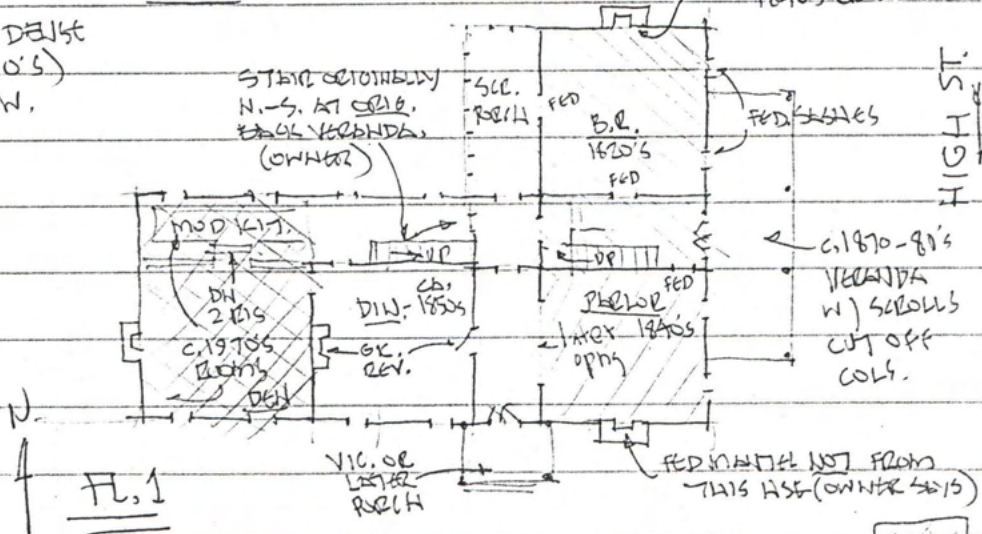 O'S)
W.
STAIR ORIGINALLY
N.-S. AT ORIG.
BACK VERANDA.
(OWNER)
SCR.
PORCH
FED
B.R.
1820'S
FED
FED. SASHES
HIGH ST.
MOD KIT.
UP
UP
DN
2 RIS
C. 1970'S
ROOMS
DEN
DIN.
CA.
1850s
GK.
REV.
FED
PARLOR
1840'S
LATER
OPNG
C. 1870-80'S
VERANDA
W/ SCROLLS
CUT OFF
COLS.
N.
FL. 1
VIC. OR
LATER
PORCH
FED MANTEL NOT FROM
THIS HSE (OWNER SAYS)